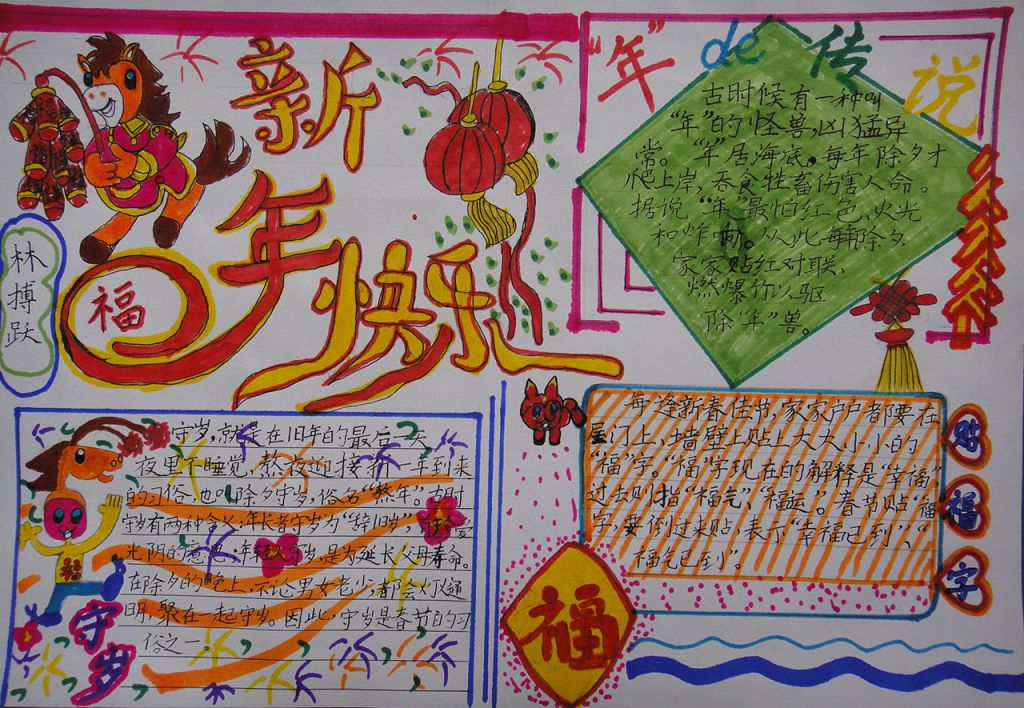 新
年快乐
福
林搏跃
"年"de传说
古时候有一种叫
"年"的怪兽,凶猛异
常。"年"居海底。每年除夕才
爬上岸,吞食牲畜伤害人命。
据说"年"最怕红色,火光
和炸响。从此每年除夕
家家贴红对联、
燃爆竹以驱
除"年"兽。
守岁,就是在旧年的最后一天
夜里不睡觉,熬夜迎接新一年到来
的习俗,也叫除夕守岁,俗名"熬年"。古时
守岁有两种含义:年长者守岁为"辞旧岁",有珍爱
光阴的意思;年轻人守岁,是为延长父母寿命。
在除夕的晚上,不论男女老少,都会灯火通
明,聚在一起守岁。因此,守岁是春节的习
俗之一。
守岁
福
每逢新春佳节,家家户户都要在
屋门上、墙壁上贴上大大小小的
"福"字。"福"字现在的解释是"幸福",
过去则指"福气"、"福运"。春节贴"福"
字,要倒过来贴,表示"幸福已到"、"
福气已到"。
贴福字
福